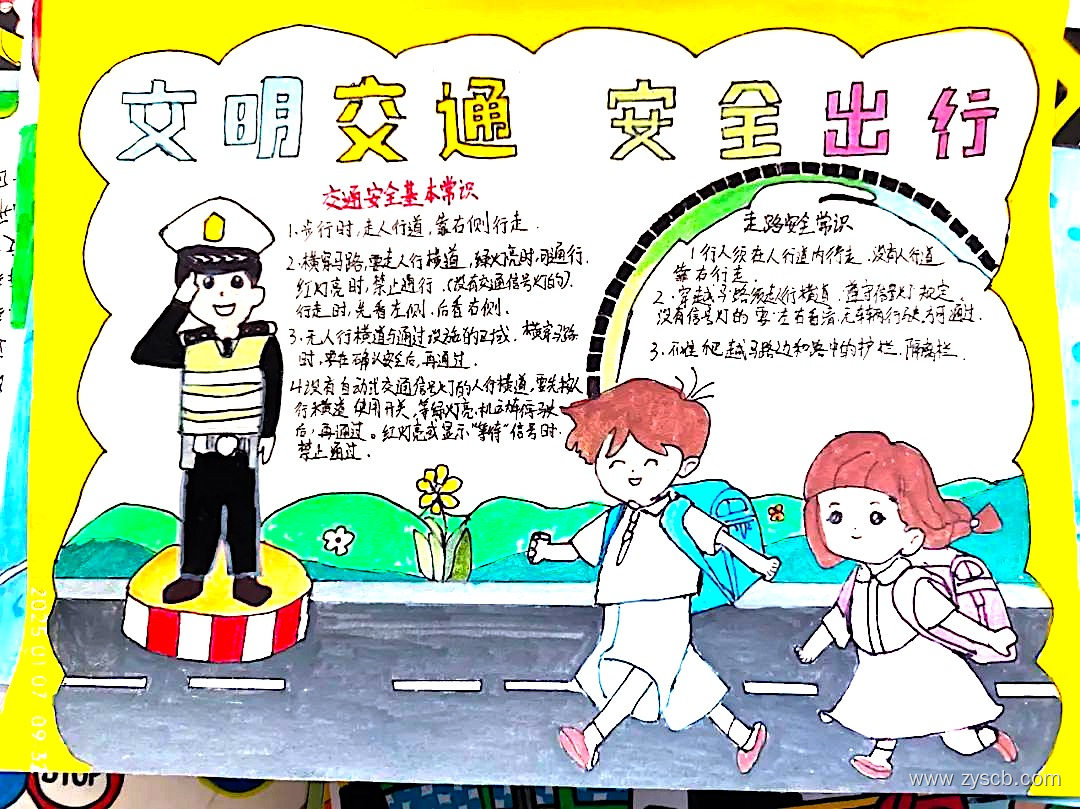 文明交通 安全出行
交通安全基本常识
1.步行时,走人行道,靠右侧行走.
2.横穿马路,要走人行横道,绿灯亮时,可通行.
红灯亮时,禁止通行.(没有交通信号灯的).
行走时,先看左侧,后看右侧.
3.无人行横道与通过设施的区域.横穿马路
时,要在确认安全后,再通过.
4.没有自动式交通信号灯的人行横道,要先按人
行横道使用开关,等绿灯亮,机动车停驶
后,再通过。红灯亮或显示"等待"信号时,
禁止通过.
走路安全常识
1行人须在人行道内行走.没有人行道
靠右行走
2.穿越马路须走人行横道.遵守信号灯规定.
没有信号灯的要左右看清,无车辆行驶方可通过.
3.不准爬越马路边和路中的护栏.隔离栏.
2025 01 07 09:32
STOP
www.zyscb.com